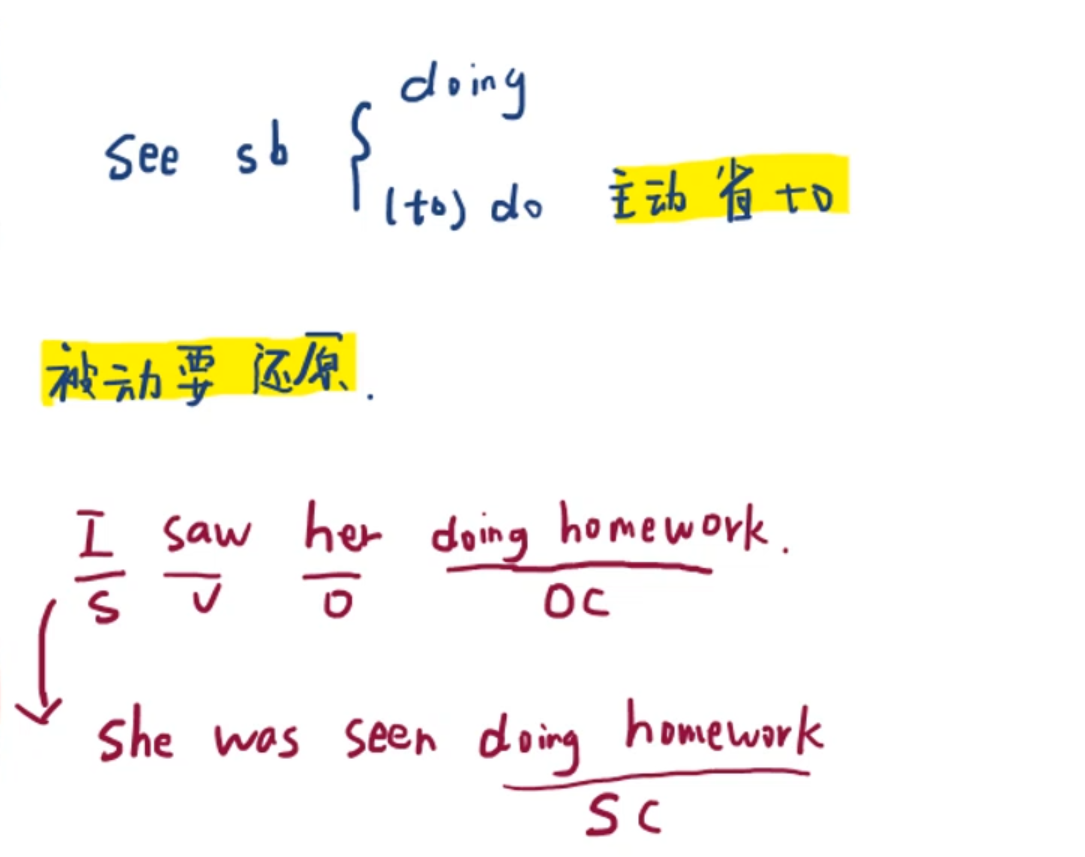 doing
see sb {
(to) do 主动省to
被动要还原.
I saw her doing homework.
S V O OC
she was seen doing homework
SC